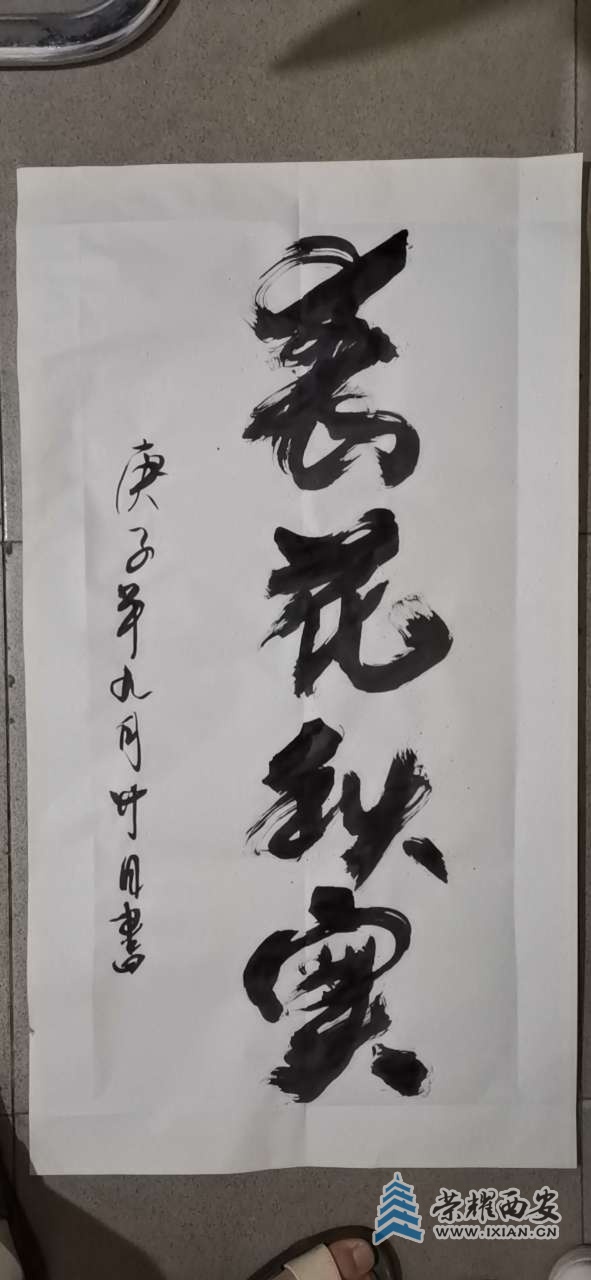 春花秋實
庚子年九月卅日書
荣耀西安
WWW.IXIAN.CN